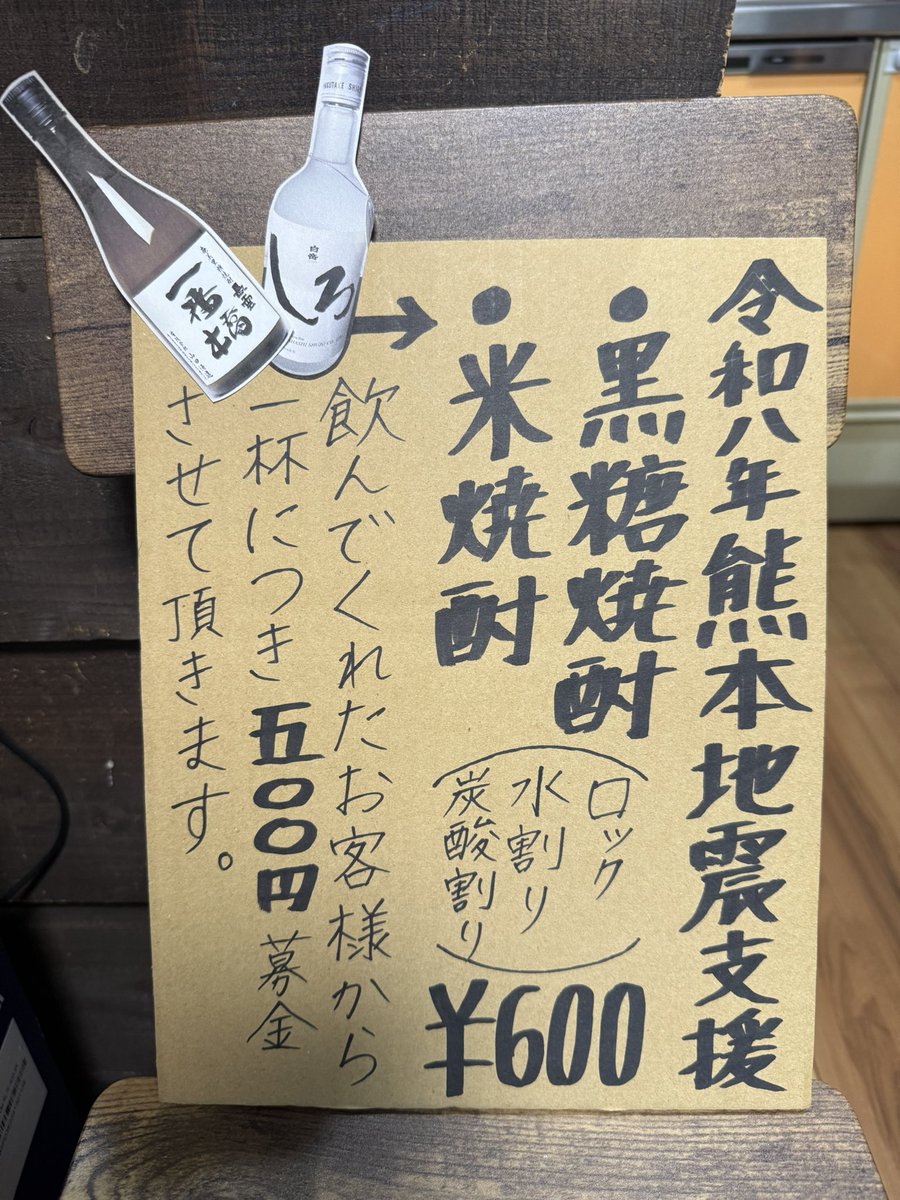 令和八年熊本地震支援
・黒糖焼酎
・米焼酎
(ロック
水割り
炭酸割り)
¥600
飲んでくれたお客様から
一杯につき五〇〇円募金
させて頂きます。
しろ
白岳